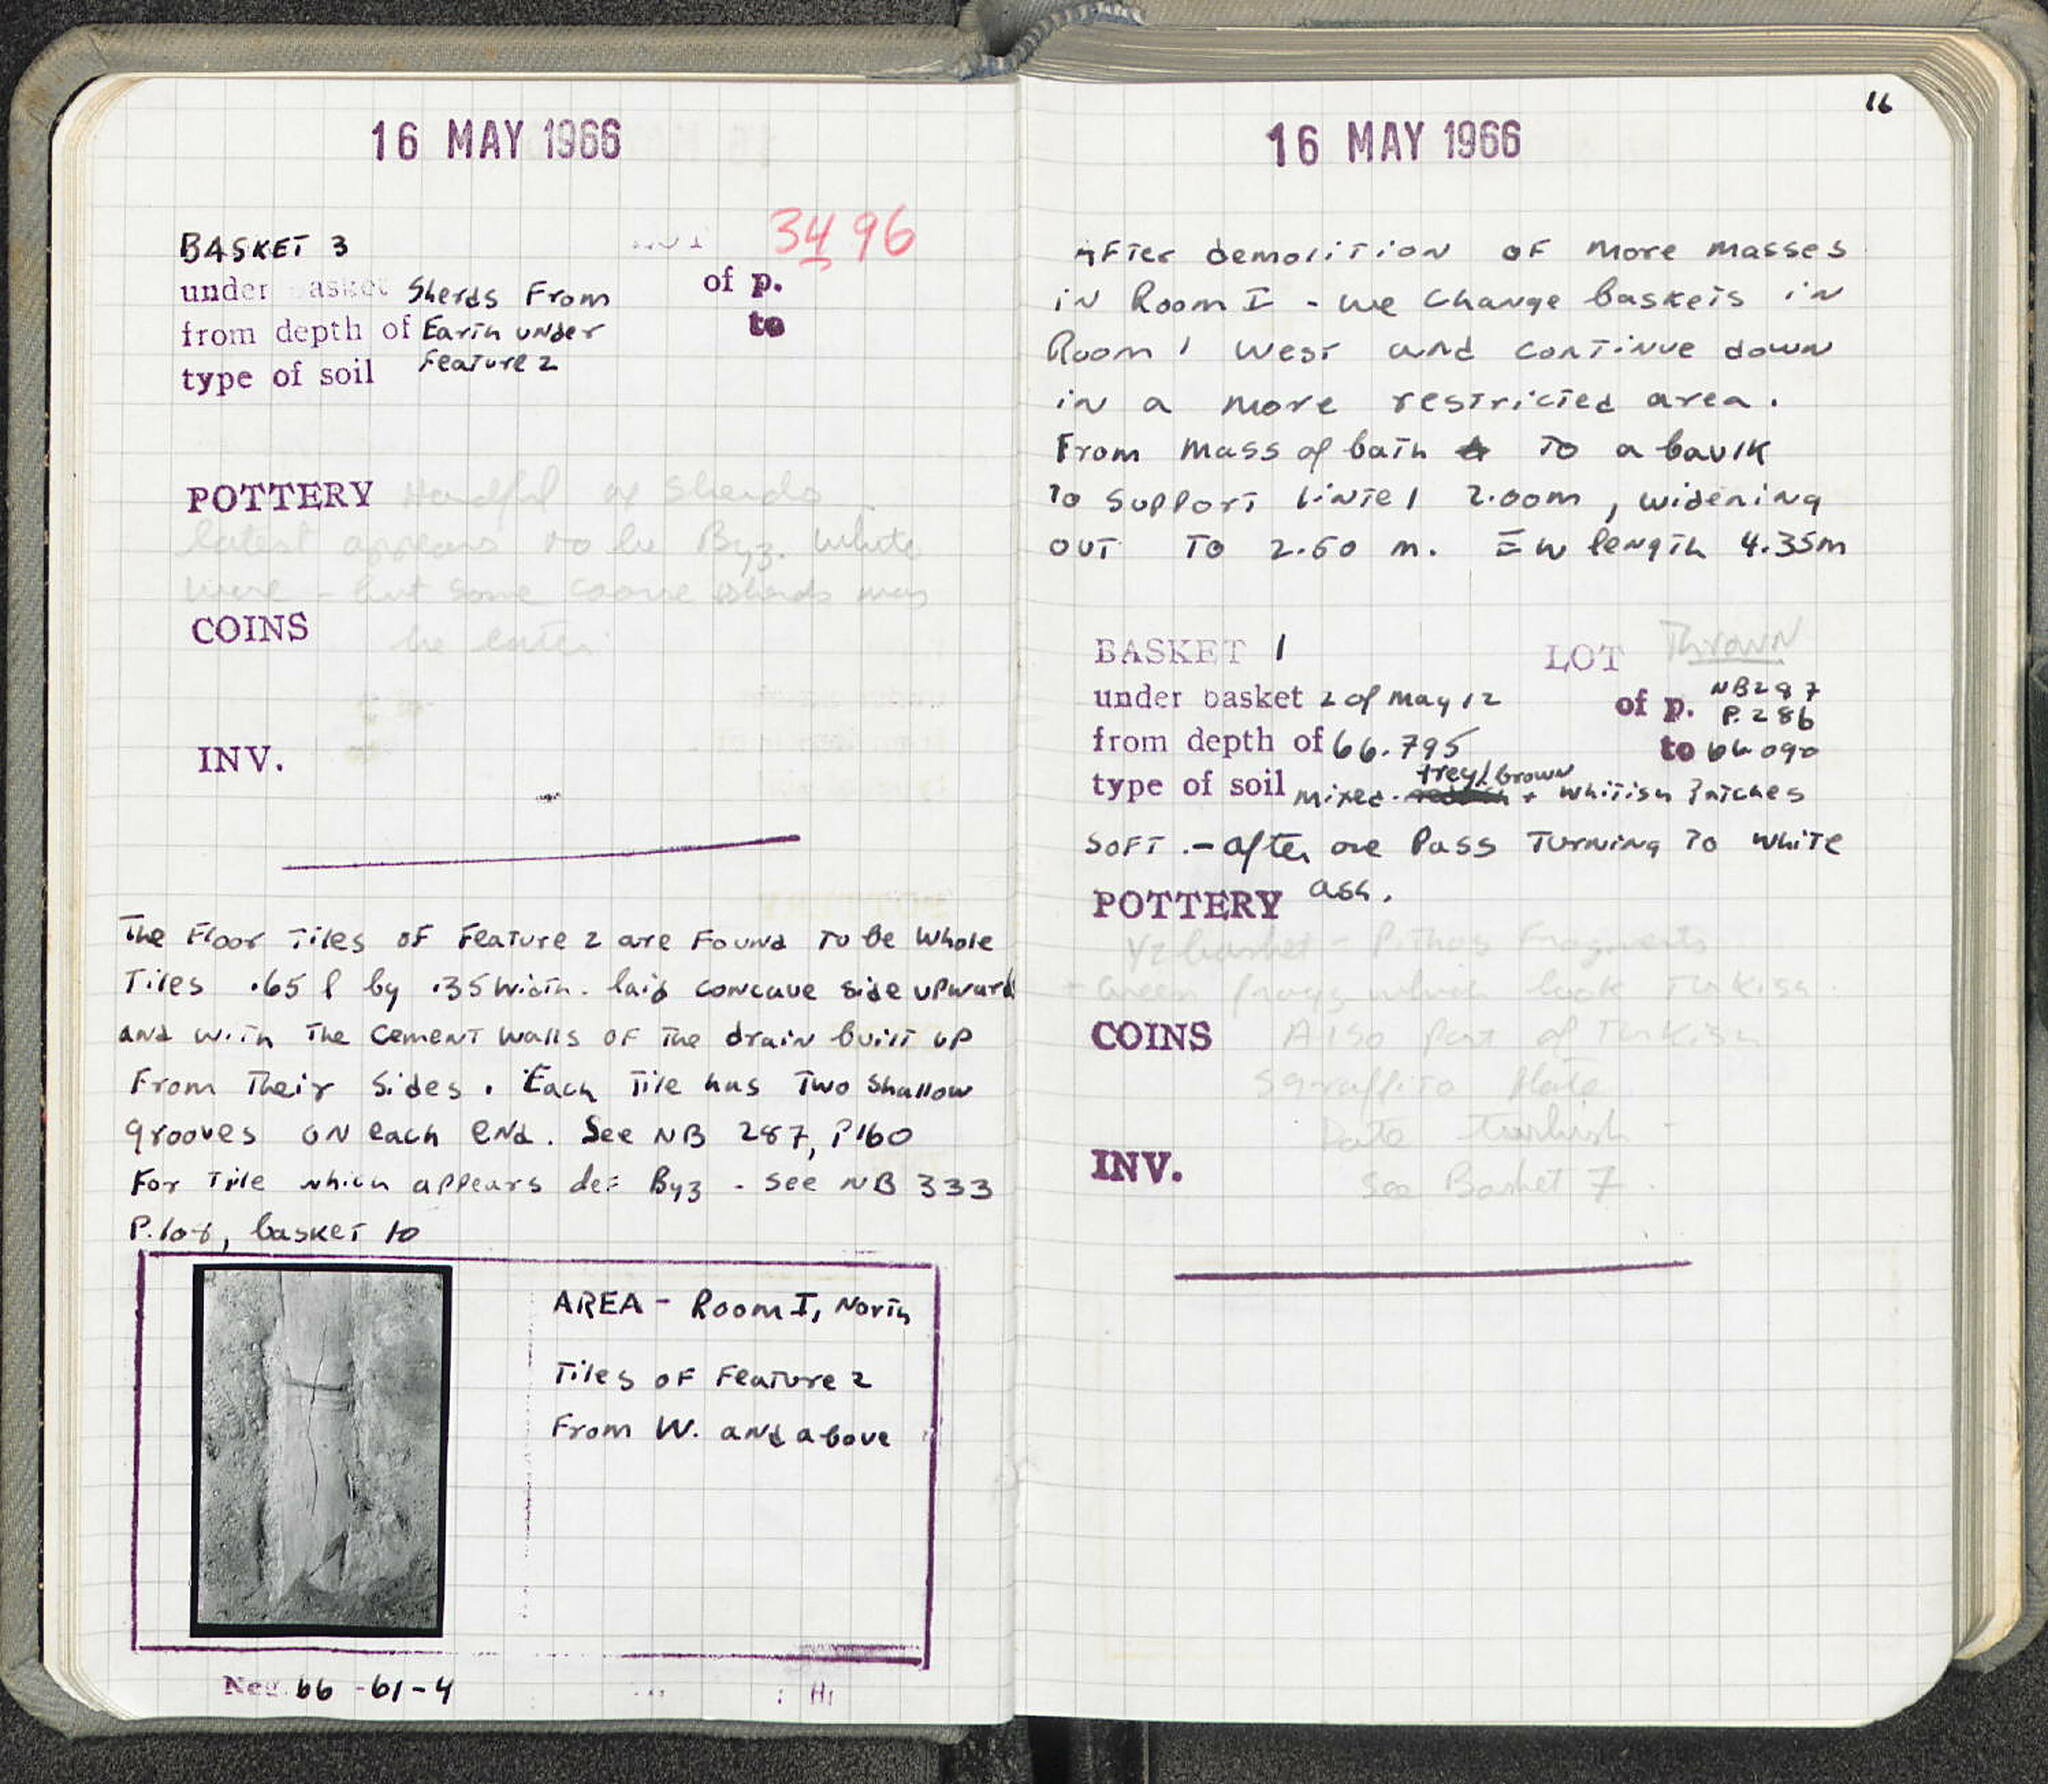 16 MAY 1966
3496
BASKET 3
under basket Sherds From of p.
from depth of Earth under to
type of soil Feature 2
POTTERY Handful of sherds
latest appears to be Byz. white
ware - but some coarse sherds may
COINS be later
INV.
The Floor Tiles of Feature 2 are Found to be whole
Tiles .65 l by .35 width. laid concave side upward
and with the cement walls of the drain built up
From Their Sides. Each Tile has Two shallow
grooves on each end. See NB 287, P160
For Tile which appears Byz - see NB 333
basket 10
AREA - Room I, North
Tiles of Feature 2
From W. and above
Neg. 66 - 61 - 4
16
16 MAY 1966
After demolition of more masses
in Room I - we change baskets in
Room 1 West and continue down
in a more restricted area.
From mass of bath to a baulk
to support lintel 2.00m, widening
out to 2.60 m. EW length 4.35m
BASKET 1 LOT Thrown
under basket 2 of may 12 of p. NB287 P.286
from depth of 66.795 to 66.090
type of soil mixed. grey/brown + whitish patches
soft. - after one pass turning to white
ash.
POTTERY
1/2 basket - Pithos Fragments
+ Green frags which look Turkish.
COINS Also part of Turkish
sgraffito plate
Date Turkish -
INV. See Basket 7.